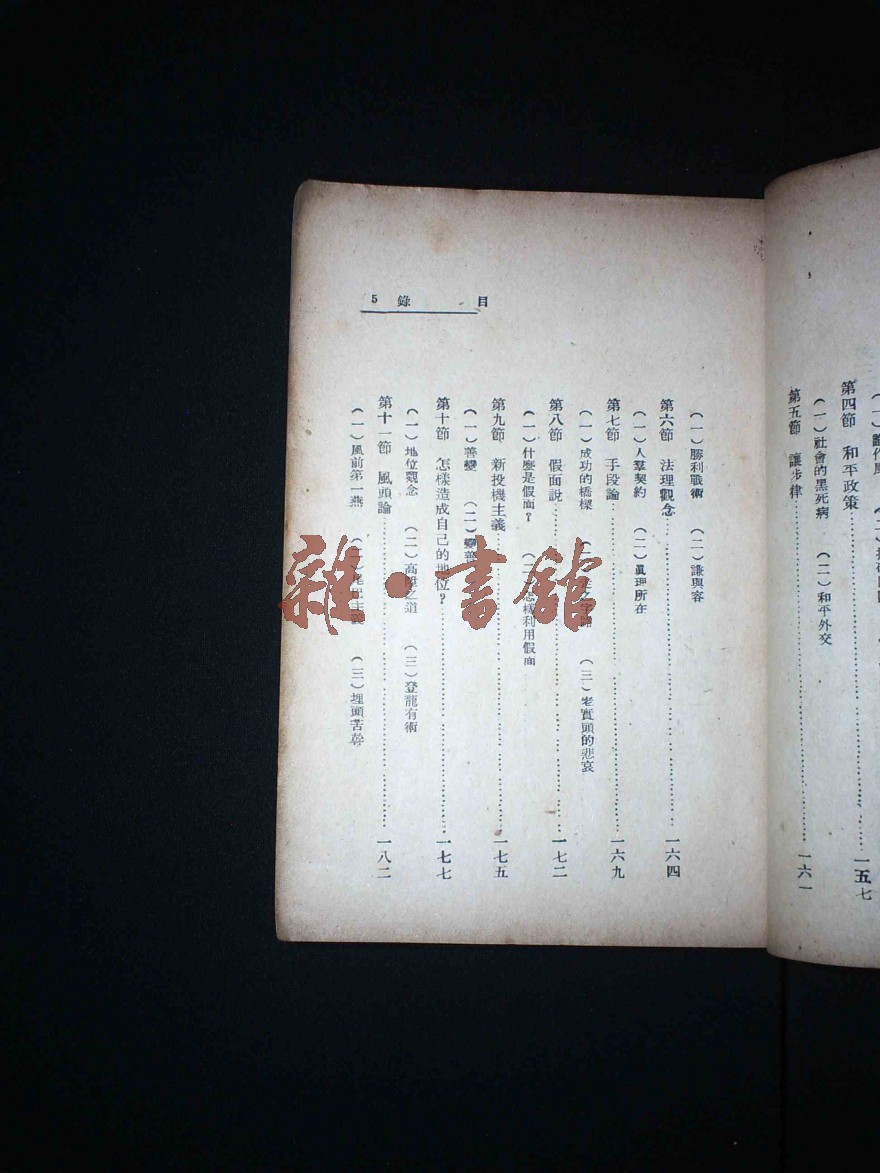 第四節　和平政策……一五七
（一）社會的黑死病　（二）和平外交
第五節　讓步律……一六一
目錄 5
（一）勝利戰術　（二）謙與容
第六節　法理觀念……一六四
（一）人羣契約　（二）眞理所在
第七節　手段論……一六九
（一）成功的橋樑　（三）老實頭的悲哀
第八節　假面說……一七二
（一）什麼是假面？　（二）怎樣利用假面
第九節　新投機主義……一七五
（一）善變　（二）變善
第十節　怎樣造成自己的地位？……一七七
（一）地位觀念　（二）高陞之道　（三）登龍有術
第十一節　風頭論……一八二
（一）風前第一燕　（三）埋頭苦幹
雜·書館